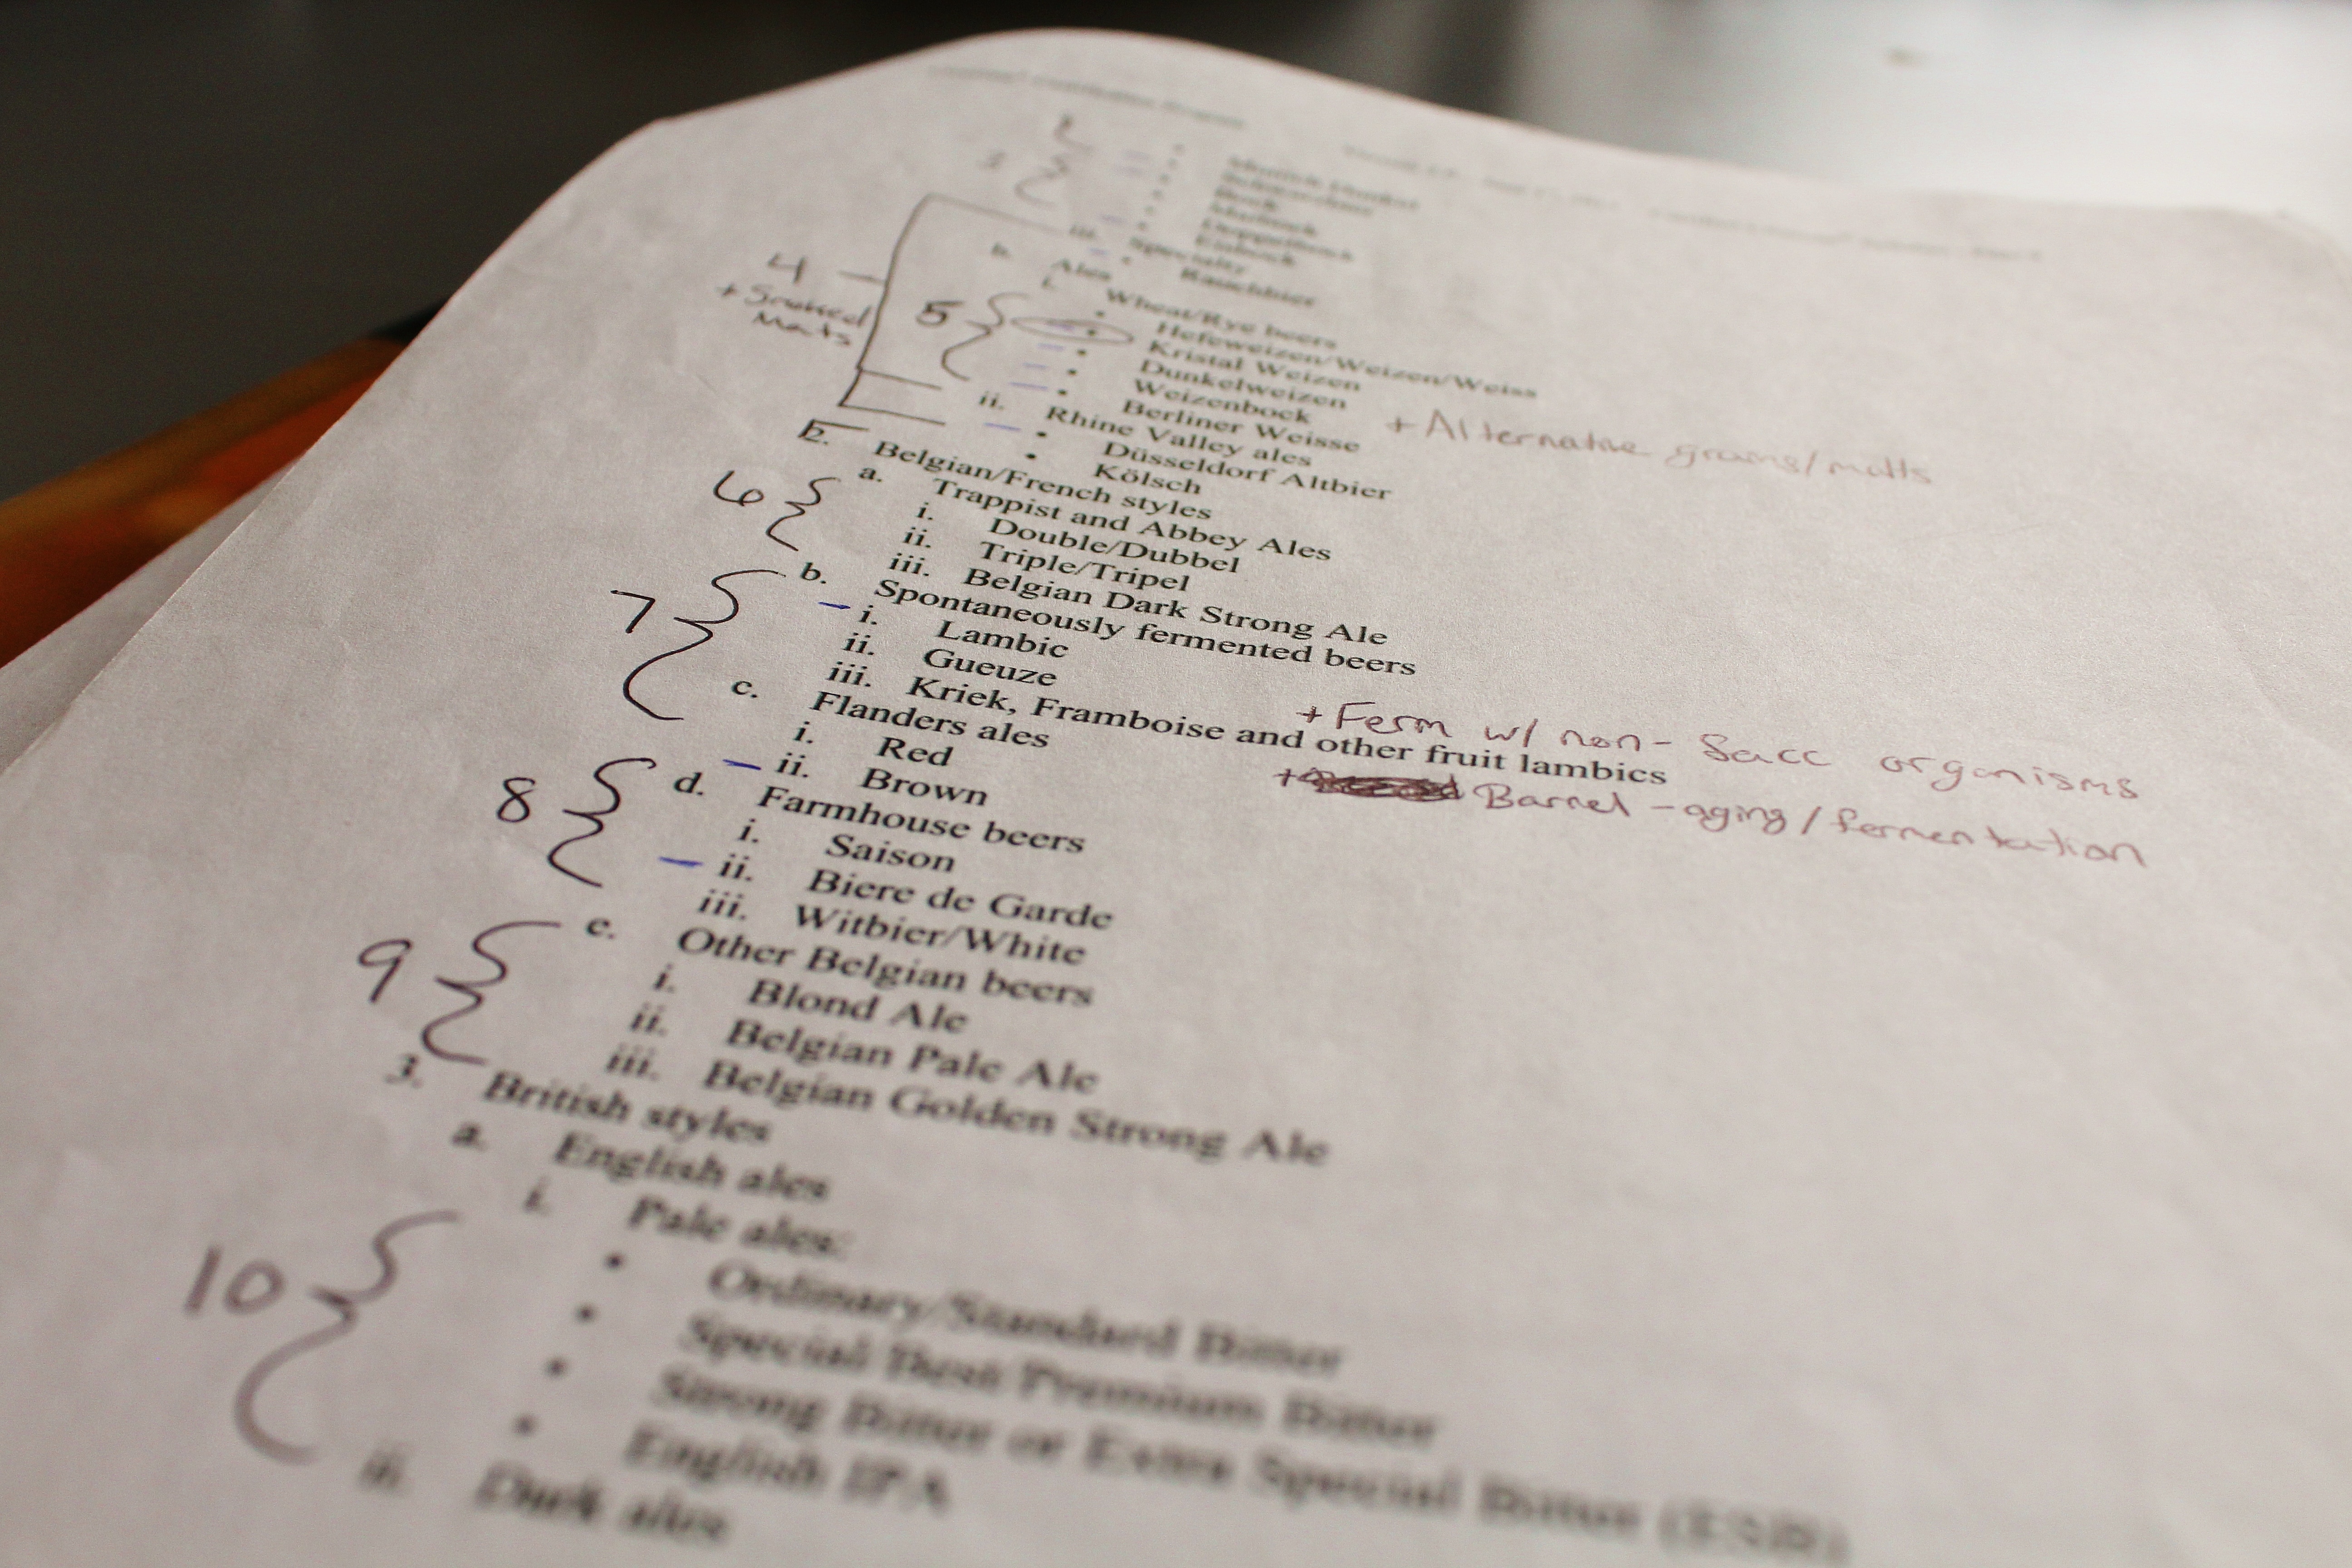 Munich Dunkel
Schwarzbier
Bock
Maibock
Doppelbock
Eisbock
iii. Specialty
Rauchbier
b. Ales
4
+ Smoked
Malts
i. Wheat/Rye beers
5
Hefeweizen/Weizen/Weiss
Kristal Weizen
Dunkelweizen
Weizenbock
Berliner Weisse
+ Alternative grains/malts
ii. Rhine Valley ales
Düsseldorf Altbier
Kölsch
2. Belgian/French styles
6
a. Trappist and Abbey Ales
i. Double/Dubbel
ii. Triple/Tripel
iii. Belgian Dark Strong Ale
7
b. Spontaneously fermented beers
i. Lambic
ii. Gueuze
iii. Kriek, Framboise and other fruit lambics
+ Ferm w/ non-Sacc organisms
+ Barrel-aging/fermentation
c. Flanders ales
i. Red
ii. Brown
8
d. Farmhouse beers
i. Saison
ii. Biere de Garde
iii. Witbier/White
9
e. Other Belgian beers
i. Blond Ale
ii. Belgian Pale Ale
iii. Belgian Golden Strong Ale
3. British styles
a. English ales
i. Pale ales:
10
Ordinary/Standard Bitter
Special/Best/Premium Bitter
Strong Bitter or Extra Special Bitter (ESB)
English IPA
ii. Dark ales